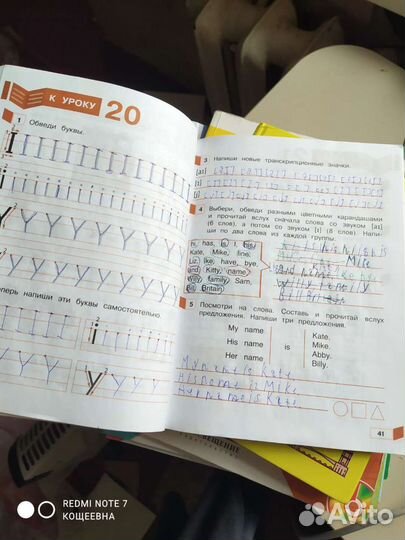 К УРОКУ 20
1 Обведи буквы.
теперь напиши эти буквы самостоятельно.
3 Напиши новые транскрипционные значки.
Выбери, обведи разными цветными карандашами
и прочитай вслух сначала слова со звуком [aɪ]
(6 слов), а потом со звуком [ɪ] (8 слов). Напи-
ши по два слова из каждой группы.
hi, has, is, I, his,
Kate, Mike, fine,
Liz, like, have, bye,
and, Kitty, name,
Willy, family, Sam,
Bill, Britain
5 Посмотри на слова. Составь и прочитай вслух
предложения. Напиши три предложения.
My name
His name
Her name
is
Kate.
Mike.
Abby.
Billy.
My name is Kate
His name is Mike
Her name is Kate
41
REDMI NOTE 7
КОЩЕЕВНА
Avito